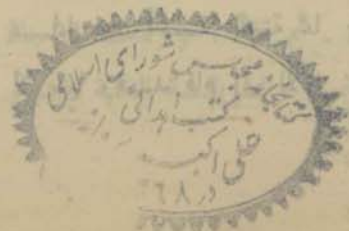 کتابخانه مجلس شورای اسلامی
کتب اهدائی
علی اکبر
در ۶۸